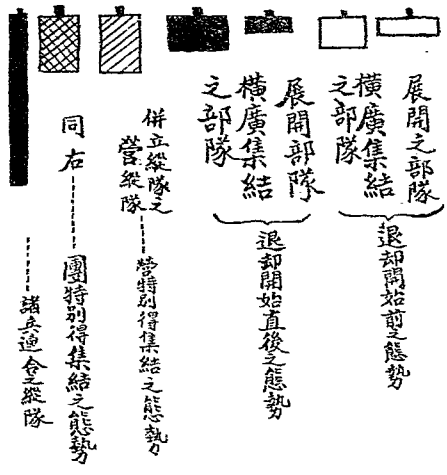 展開之部隊
橫廣集結
之部隊
退却開始前之態勢
展開部隊
橫廣集結
之部隊
退却開始直後之態勢
併立縱隊之
營縱隊
營特別得集結之態勢
同右
團特別得集結之態勢
諸兵連合之縱隊